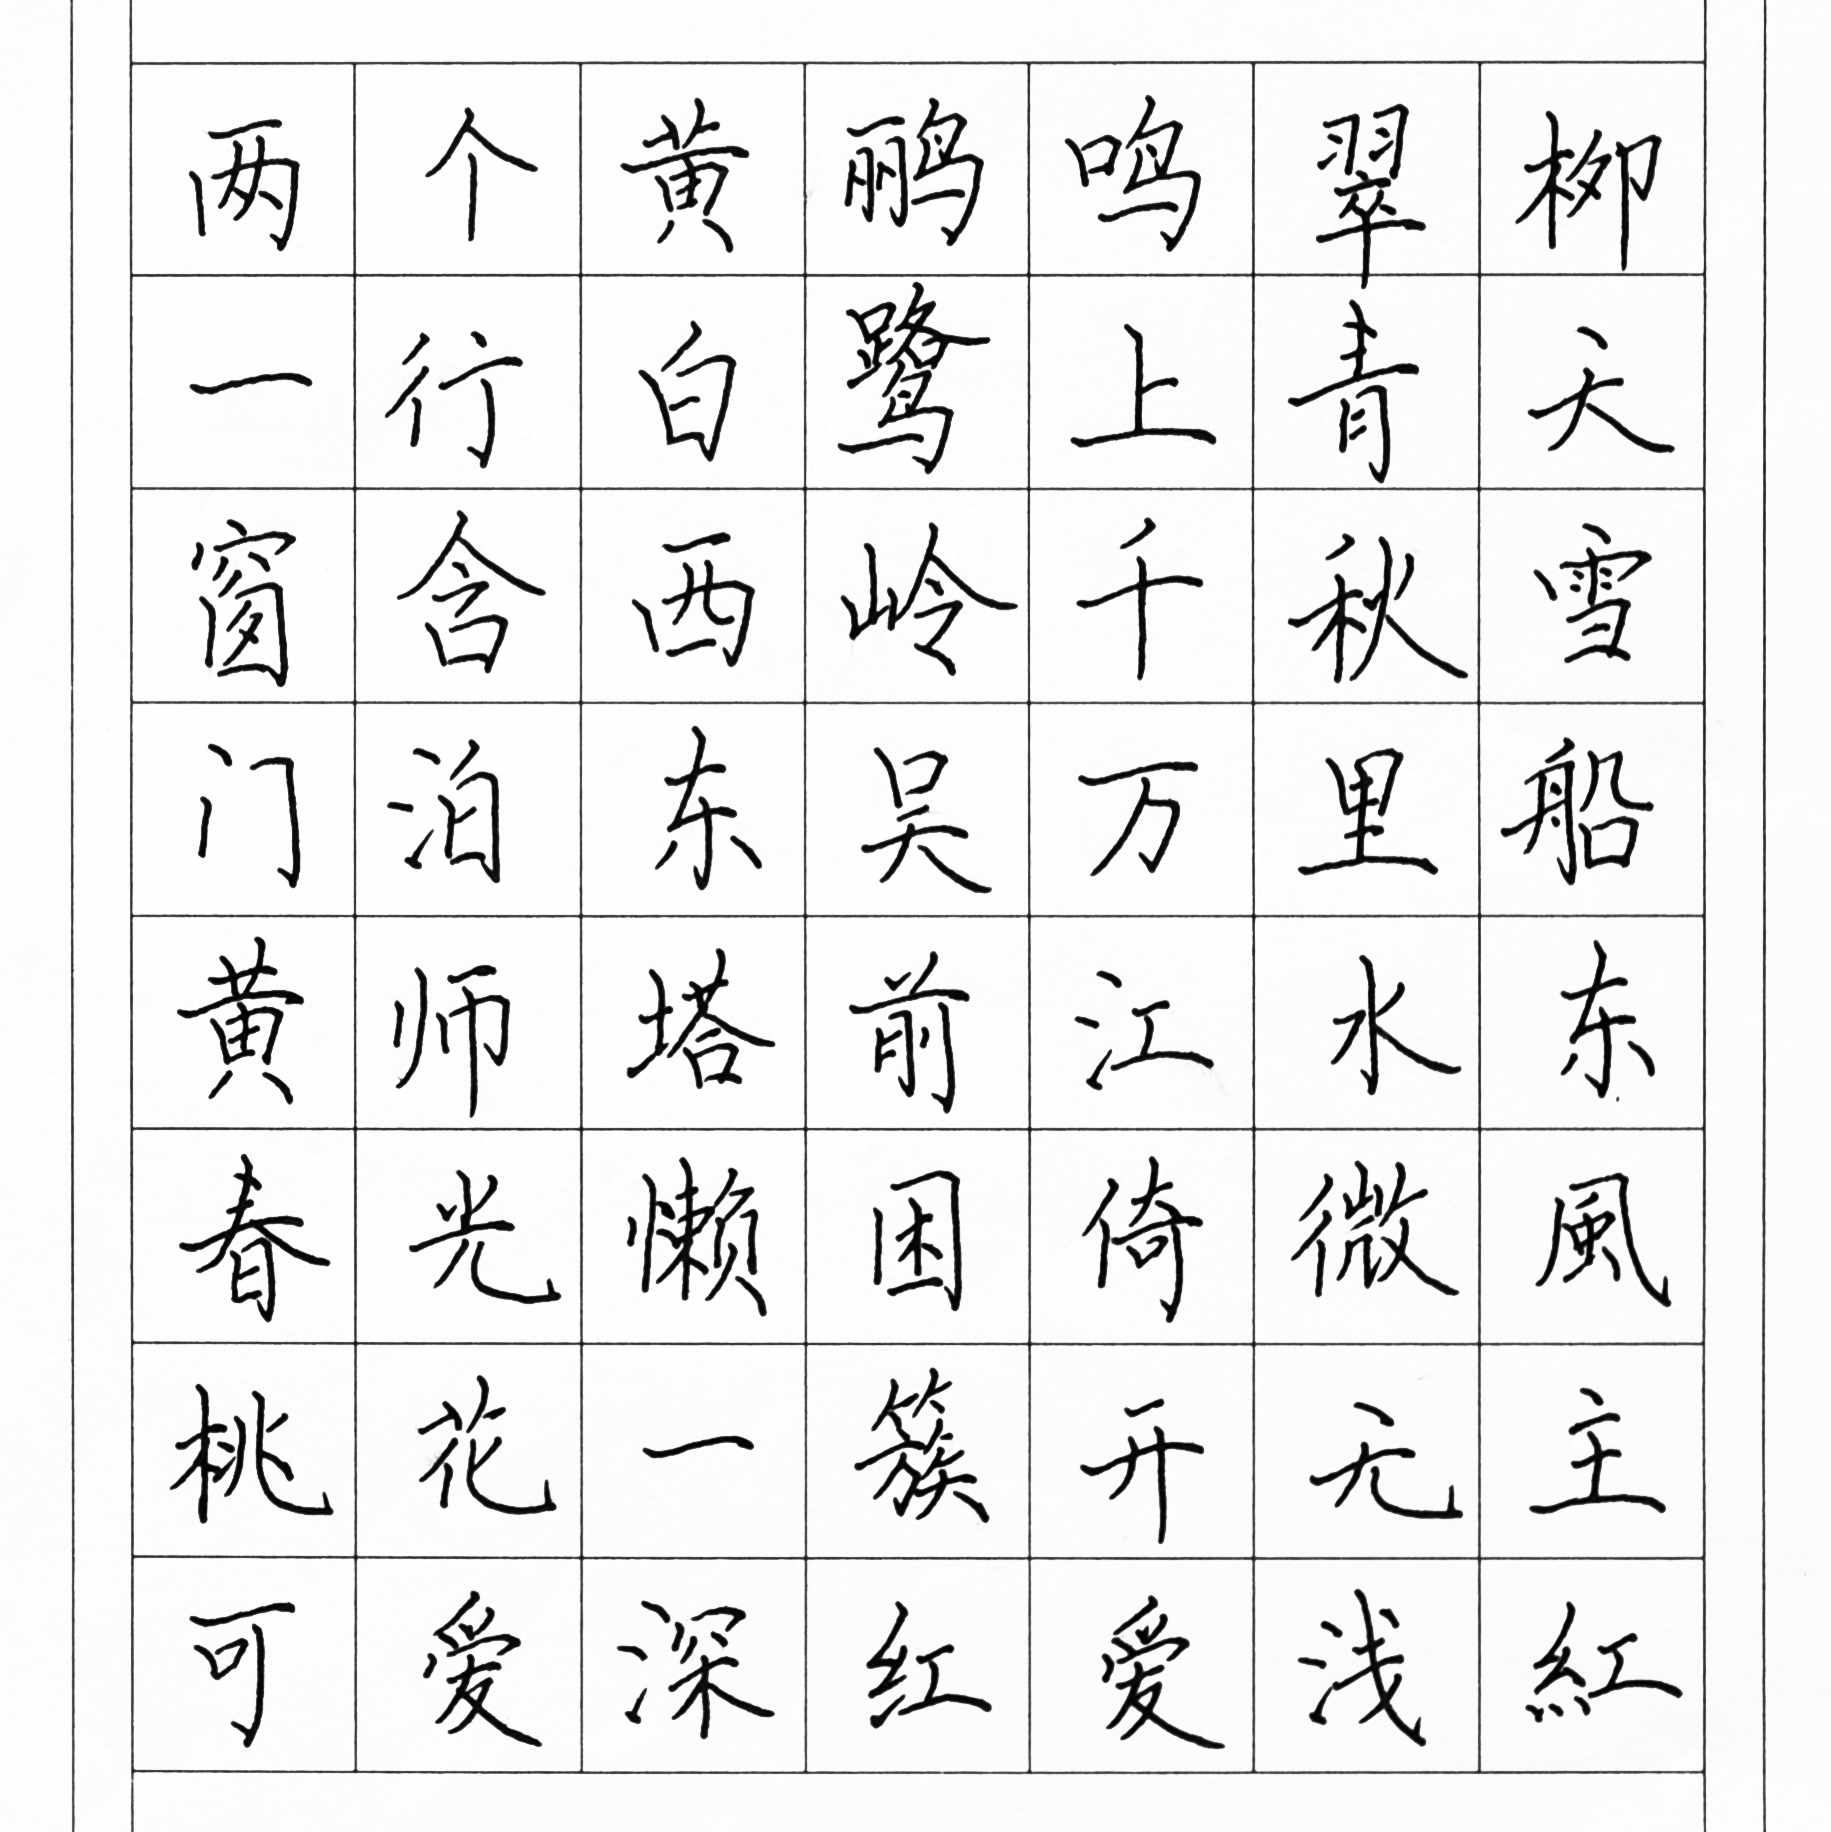 两个黄鹂鸣翠柳
一行白鹭上青天
窗含西岭千秋雪
门泊东吴万里船
黄师塔前江水东
春光懒困倚微風
桃花一簇开无主
可爱深红爱浅紅